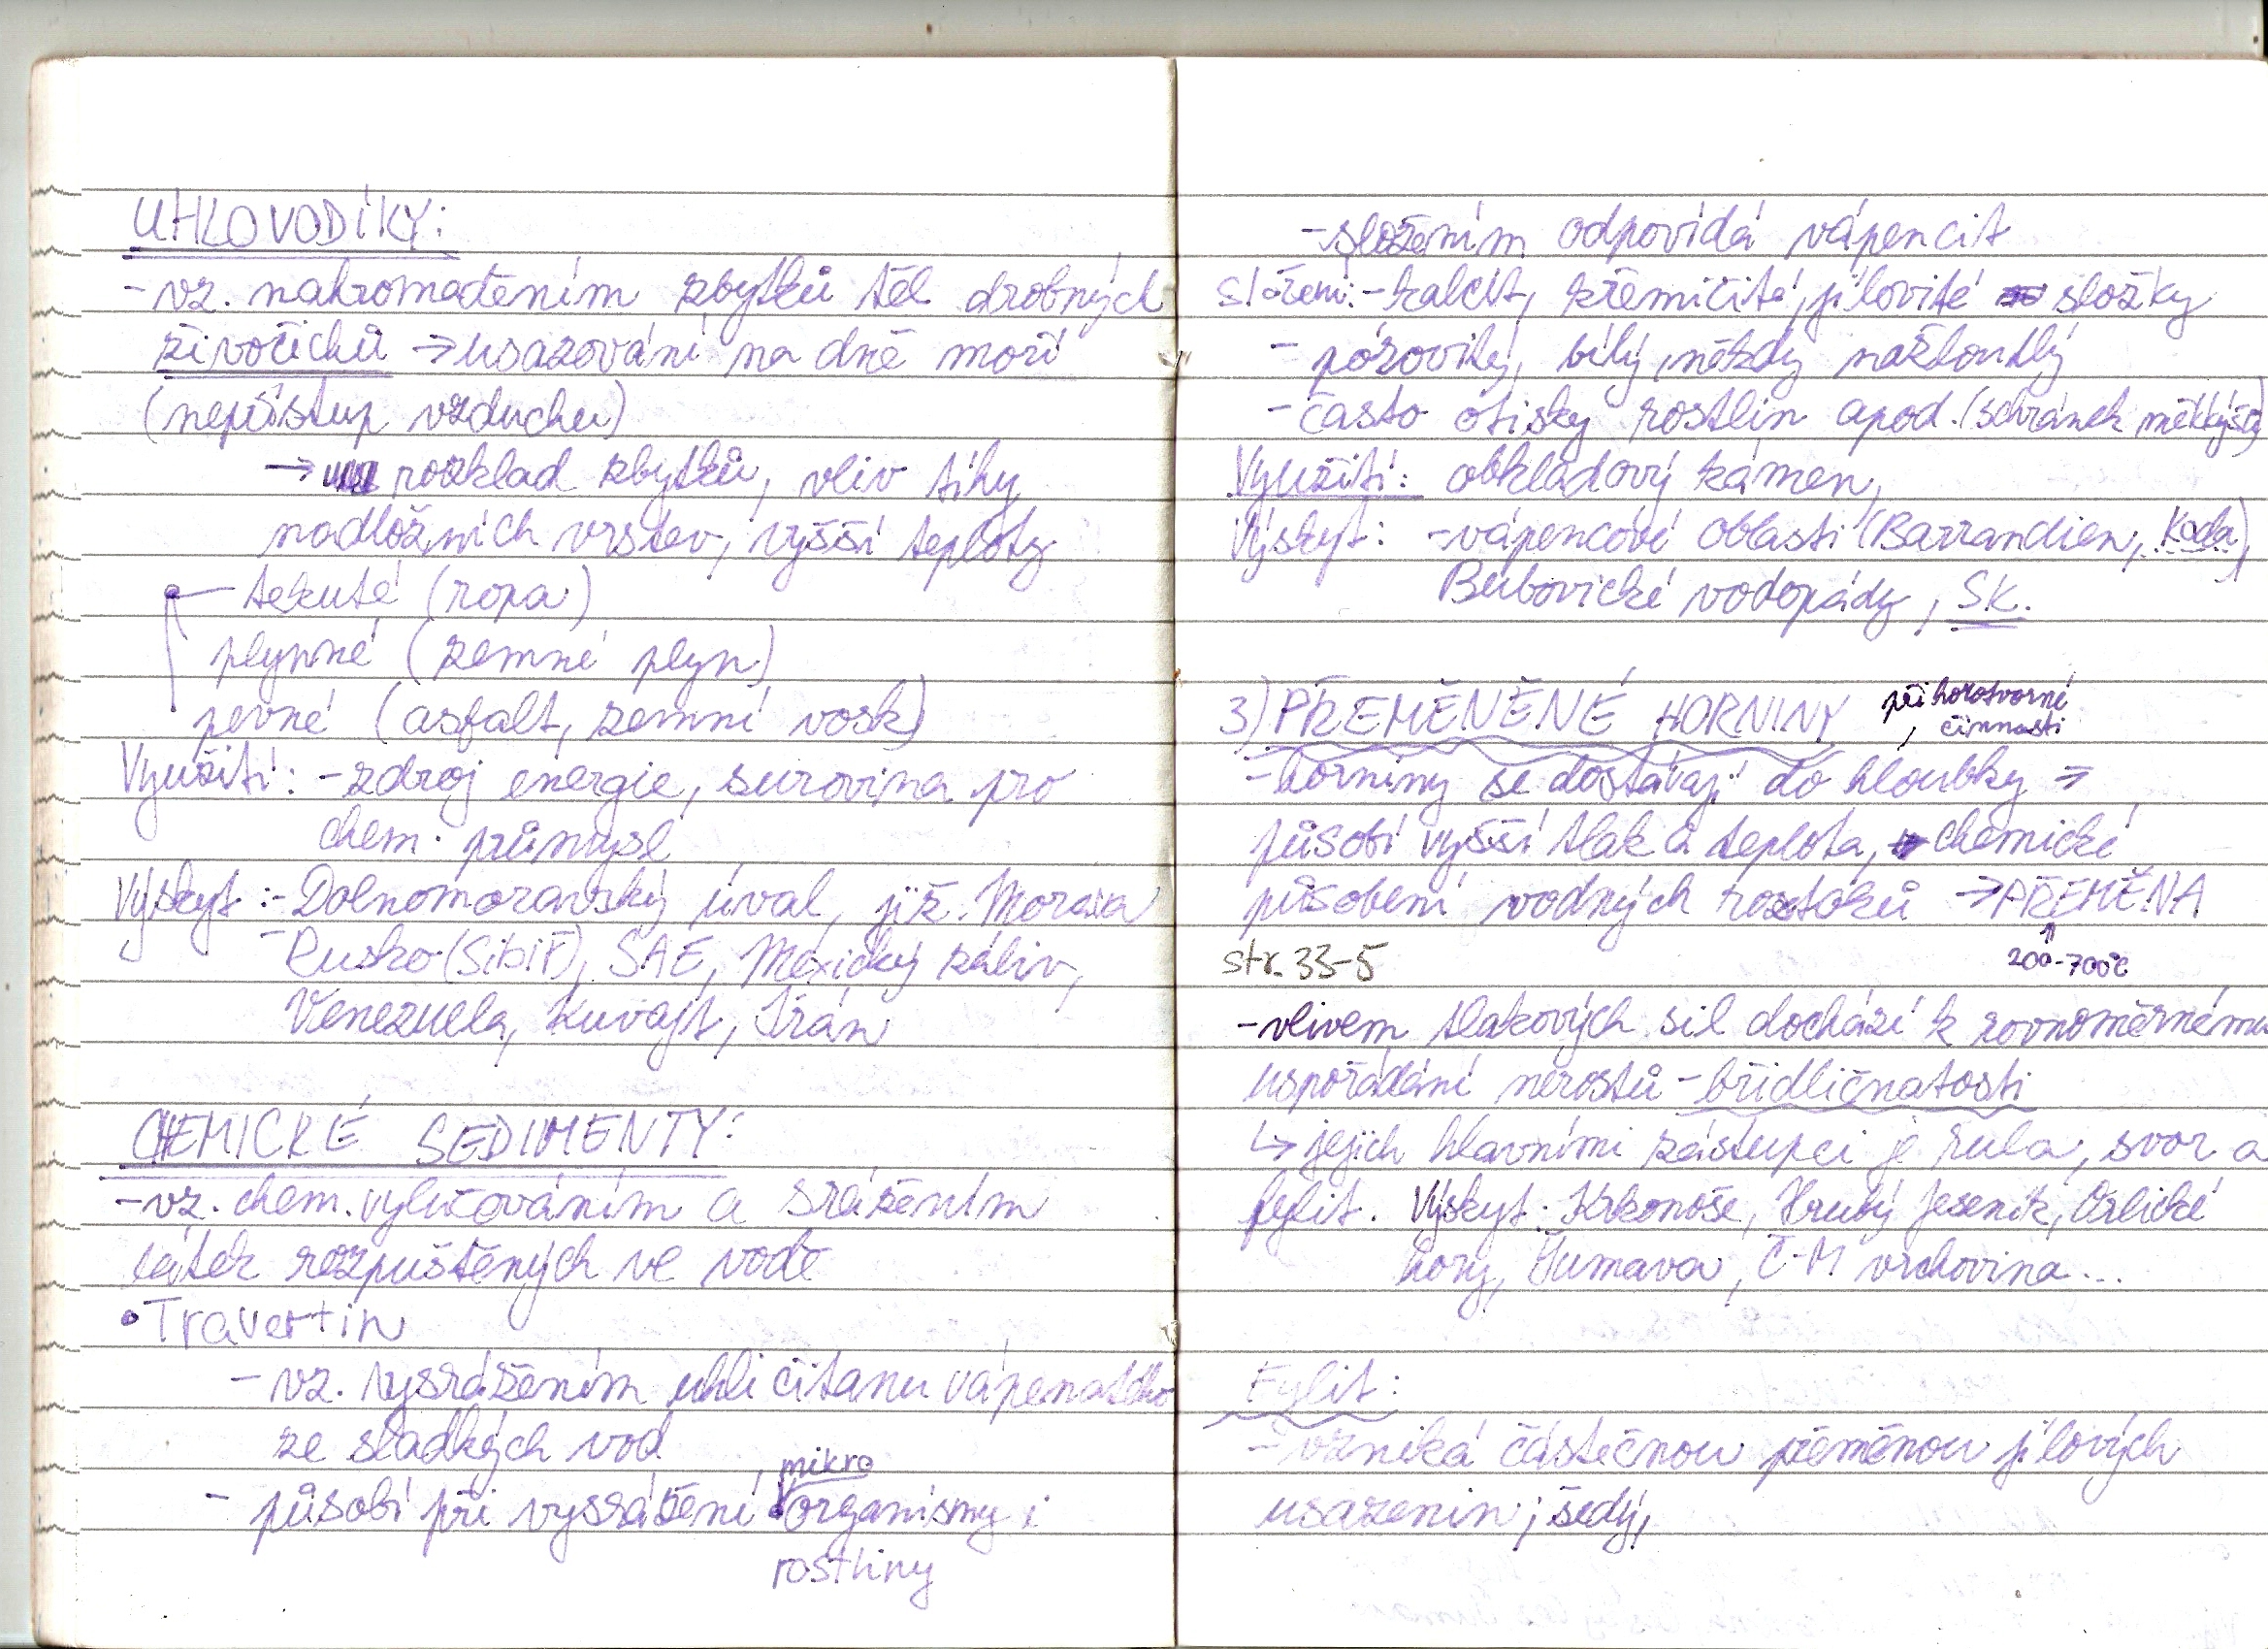 UHLOVODÍKY:
- vz. nahromaděním zbytků těl drobných
živočichů → usazování na dně moří
(nepřístup vzduchu)
→ rozklad zbytků, vliv tíhy
nadložních vrstev, vyšší teploty
- tekuté (ropa)
plynné (zemní plyn)
pevné (asfalt, zemní vosk)
Využití: - zdroj energie, surovina pro
chem. průmysl
Výskyt: - Dolnomoravský úval, již. Morava
- Rusko (Sibiř), SAE, Mexický záliv,
Venezuela, Kuvajt, Írán
CHEMICKÉ SEDIMENTY:
- vz. chem. vylučováním a srážením
látek rozpuštěných ve vodě
• Travertin
- vz. vysrážením uhličitanu vápenatého
ze sladkých vod
mikro
- působí při vysrážení organismy i
rostliny
- složením odpovídá vápencit
Složení: - kalcit, křemičité, jílovité složky
- pórovitý, bílý, někdy nažloutlý
- často otisky rostlin apod. (schránek měkkýšů)
Využití: obkladový kámen,
Výskyt: - vápencové oblasti (Barrandien, Koda),
Bubovické vodopády, SK.
3) PŘEMĚNĚNÉ HORNINY při horotvorné
činnosti
- horniny se dostávají do hloubky →
působí vyšší tlak a teplota, chemické
působení vodných roztoků → PŘEMĚNA
str. 33-5 200-700°C
- vlivem tlakových sil dochází k rovnoměrnému
uspořádání nerostů - břidličnatosti
↳ jejich hlavními zástupci je rula, svor a
fylit. Výskyt: Krkonoše, Hrubý Jeseník, Orlické
hory, Šumava, Č-M vrchovina...
Fylit:
- vzniká částečnou přeměnou jílových
usazenin; šedý,